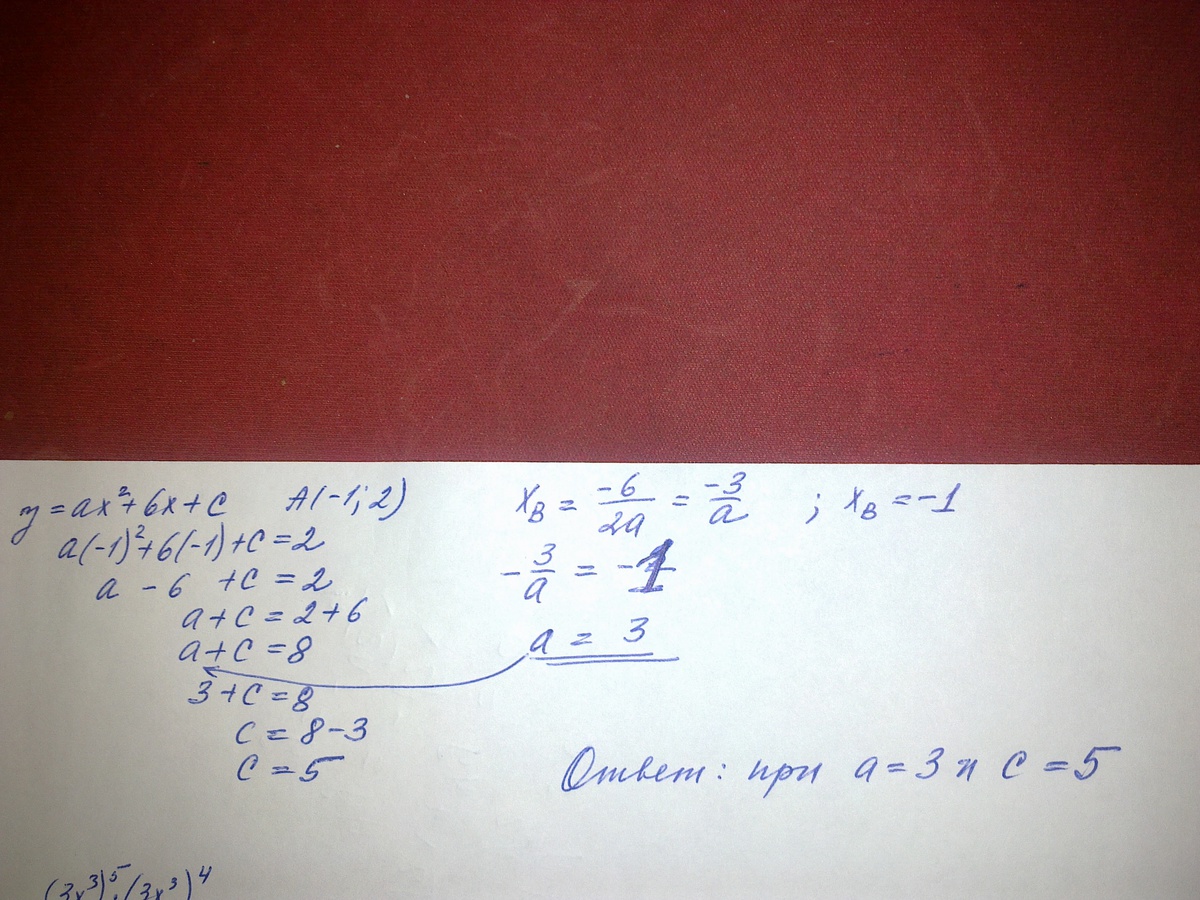 y = ax² + 6x + c A(-1; 2)
a(-1)² + 6(-1) + c = 2
a - 6 + c = 2
a + c = 2 + 6
a + c = 8
3 + c = 8
c = 8 - 3
c = 5
x_B = -6/2a = -3/a ; x_B = -1
-3/a = -1
a = 3
Ответ: при a = 3 и c = 5
(3x³)⁵ · (3x³)⁴